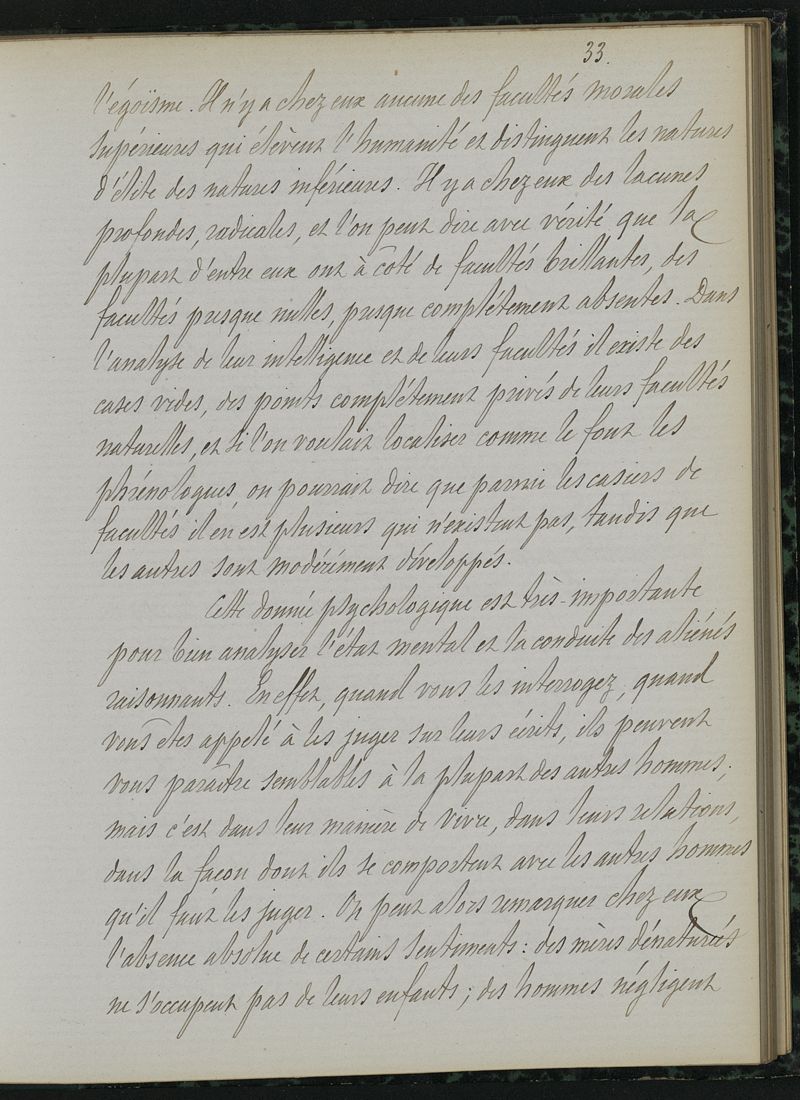 33.
l'égoïsme. Il n'y a chez eux aucune des facultés morales
supérieures qui élèvent l'humanité et distinguent les natures
d'élite des natures inférieures. Il y a chez eux des lacunes
profondes, radicales, et l'on peut dire avec vérité que la
plupart d'entre eux ont à côté de facultés brillantes, des
facultés presque nulles, presque complétement absentes. Dans
l'analyse de leur intelligence et de leurs facultés il existe des
cases vides, des points complétement privés de leurs facultés
naturelles, et si l'on voulait localiser comme le font les
phrénologues, on pourrait dire que parmi les casiers de
facultés il en est plusieurs qui n'existent pas, tandis que
les autres sont modérément développés.
Cette donnée psychologique est très-importante
pour bien analyser l'état mental et la conduite des aliénés
raisonnants. En effet, quand vous les interrogez, quand
vous êtes appelé à les juger sur leurs écrits, ils peuvent
vous paraître semblables à la plupart des autres hommes;
mais c'est dans leur manière de vivre, dans leurs relations,
dans la façon dont ils se comportent avec les autres hommes
qu'il faut les juger. On peut alors remarquer chez eux
l'absence absolue de certains sentiments: des mères dénaturées
ne s'occupent pas de leurs enfants; des hommes négligent